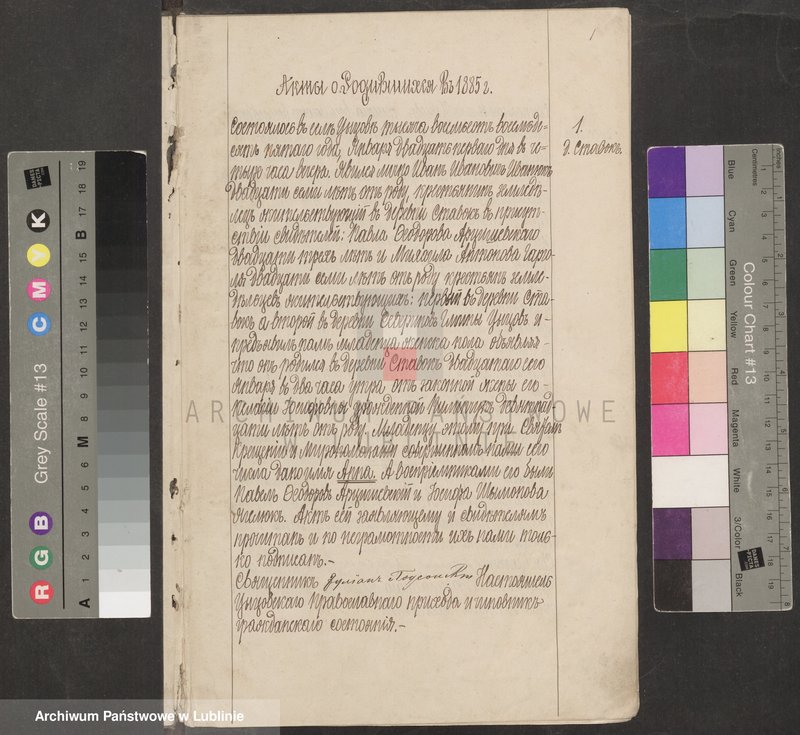 1
Акты о Родившихся въ 1885 г.
1.
д. Ставокъ.
Состоялось въ селѣ Угровѣ тысяча восемьсотъ восемьде-
сятъ пятаго года, Января двадцать перваго дня въ че-
тыре часа вечера. Явился лично Иванъ Ивановичъ
двадцати семи лѣтъ отъ роду, крестьянинъ земледѣ-
лецъ жительствующій въ деревни Ставокъ въ присут-
ствіи свидѣтелей: Павла Ѳедорова
двадцати трехъ лѣтъ и Антонова
двадцати семи лѣтъ отъ роду крестьянъ земле-
дѣльцевъ жительствующихъ: первый въ деревни Ста-
вокъ а второй въ деревни гмины Угровъ и
предъявилъ намъ младенца женска пола объявляя
что онъ родился въ деревни Ставокъ двадцатаго сего
Января въ два часа утра, отъ законной жены его
рожденной
цати лѣтъ отъ роду. Младенцу этому при Святомъ
Крещеніи и Миропомазаніи совершенномъ нами сего
числа дано имя Анна. А воспріемниками его были
Павелъ Ѳедоровъ и
Актъ сей заявляющему и свидѣтелямъ
прочитанъ и по неграмотности ихъ нами толь-
ко подписанъ.-
Священникъ Настоятель
Угровскаго Православнаго прихода и чиновникъ
гражданскаго состоянія.-
ARCHIWUM PAŃSTWOWE
W LUBLINIE
Archiwum Państwowe w Lublinie
Grey Scale #13
R G B
C M Y K
A 1 2 3 4 5 6 M 8 9 10 11 12 13 14 15 B 17 18 19
DANES PICTA
Colour Chart #13
Blue
Cyan
Green
Yellow
Red
Magenta
White
3/Color
Black
Centimetres
Inches
DANES PICTA